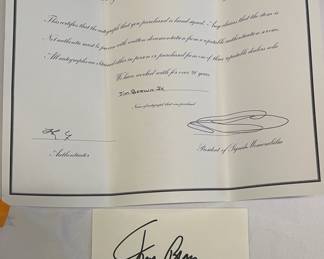 This certifies that the autograph that you purchased is hand signed. Any claims that the item is
Not authentic must be proven with written documentation from a reputable authentication service.
All autographs are obtained either in person or purchased from one of three reputable dealers who
We have worked with for over 20 years
Jim Brown Jr.
Name of autograph that was purchased
Authenticator
President of Signals Memorabilia